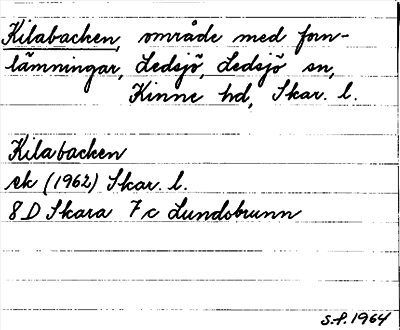 Kilabacken, område med forn-
lämningar, Ledsjö, Ledsjö sn,
Kinne hd, Skar. l.
Kilabacken
ek (1962) Skar. l.
8 D Skara 7 c Lundsbrunn
S.F. 1964